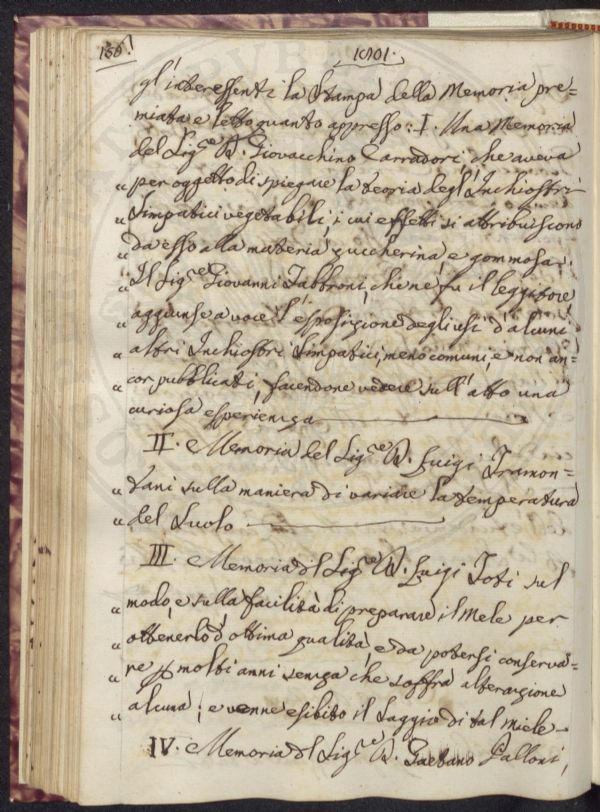 158.
1801.
gl'interessenti la Stampa della Memoria pre=
miata e letto quanto appresso: I. Una Memoria
del Sig.re D. Giovacchino Carradori, che aveva
„ per oggetto di spiegare la teoria degl'Inchiostri
„ Simpatici vegetabili, i cui effetti si attribuiscono
„ da esso alla materia zuccherina, e gommosa.
„ Il Sig.re Giovanni Fabbroni, che ne fu il leggitore
„ aggiunse a voce l'esposizione degli usi d'alcuni
„ altri Inchiostri Simpatici, meno comuni, e non an=
„ cor pubblicati, facendone vedere sull'atto una
curiosa esperienza
II. Memoria del Sig.re D. Luigi Tramon=
„ tani sulla maniera di variare la temperatura
„ del Suolo
III. Memoria d l Sig.re D. Luigi Toti sul
„ modo, e sulla facilità di preparare il Mele per
„ ottenerlo d'ottima qualità, e da potersi conserva=
„ re p molti anni senza che soffra alterazione
„ alcuna; e venne esibito il Saggio di tal miele
IV. Memoria d l Sig.re D. Gaetano Palloni,